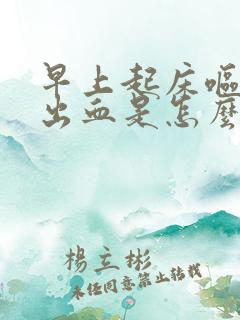 早上起床嘔
出血是怎麼
楊立彬
未经同意禁止转载